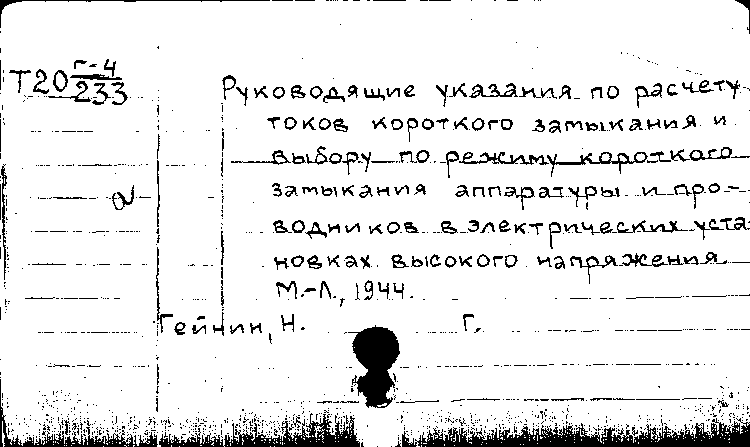 Т20 Г-4/233
Руководящие указания по расчету
токов короткого замыкания и
выбору по режиму короткого
замыкания аппаратуры и про-
водников в электрических уста
новках высокого напряжения.
М.-Л., 1944.
Гейнин, Н. Г.